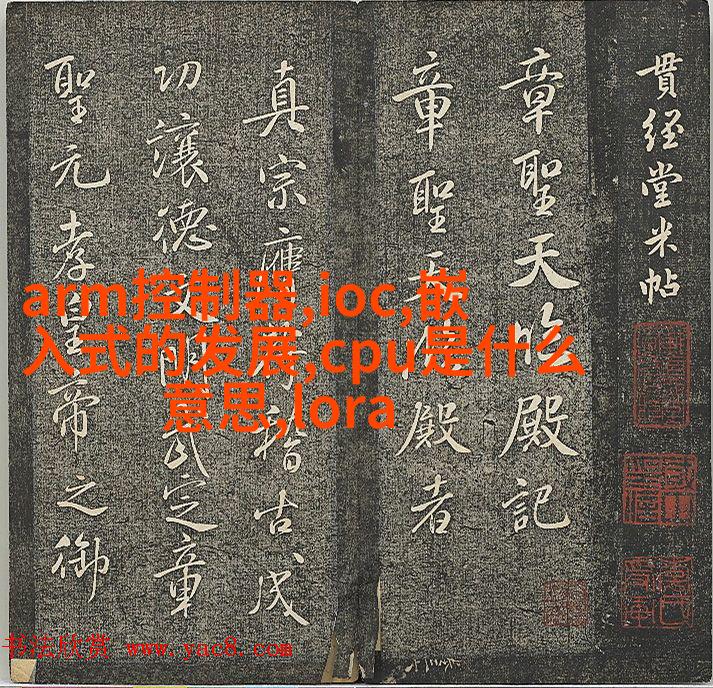 貫经堂米帖
章聖天临殿記
章聖天临殿者
真宗膺稽古成
功讓德文明武定章
聖元孝皇帝之御
arm控制器,ioc,嵌
入式的发展,cpu是什么
意思,lora
书法欣赏 www.yac8.com